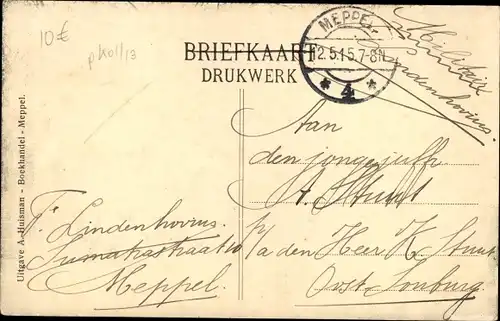 10€
pkoll/13
BRIEFKAART
DRUKWERK
MEPPEL
12.5.15.7-8N
* 4 *
Militair
Lindenhovius.
Aan
den jongejuffr.
A. Stuut
p/a den Heer K. Stuut
Oost-Souburg
F. Lindenhovius.
Sumatrastraat 10
Meppel.
Uitgave A. Huisman - Boekhandel - Meppel.